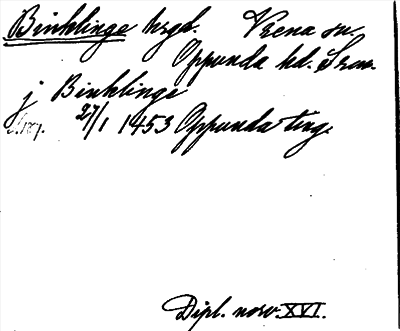 Binklinge hrgd. Vrena sn.
Oppunda hd. Srm.
j Binklinge
27/1 1453 Oppunda ting.
Dipl. norv. XVI.